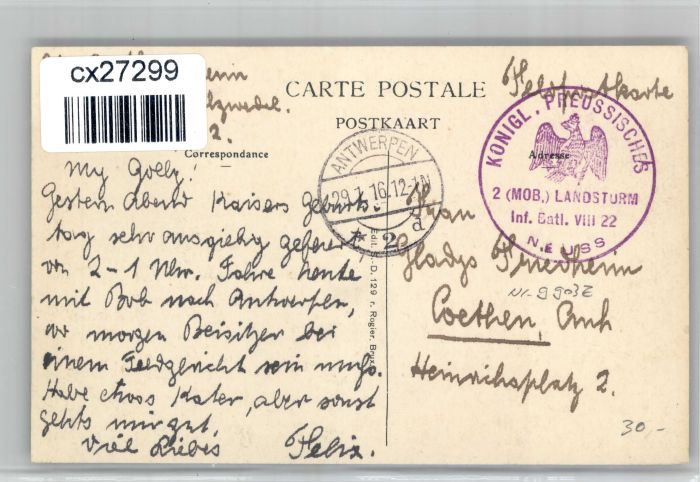 cx27299
CARTE POSTALE
POSTKAART
Correspondance
Adresse
Feldpostkarte
ANTWERPEN
29.1.16.12-1N
* 2 d
KÖNIGL. PREUSSISCHES
2 (MOB.) LANDSTURM
Inf. Batl. VIII 22
NEUSS
2.
My Golly!
Gestern Abend Kaisers Geburts-
tag sehr ausgiebig gefeiert
von 2-1 Uhr. Fahre heute
mit Bob nach Antwerpen,
wo morgen Beisitzer bei
einem Feldgericht sein muss.
Habe etwas Kater, aber sonst
gehts mir gut.
Viel Liebes Felix.
Edit. J.-D, 129 r. Rogier, Brux
Frau
Gladys Friedheim
Nr. 9903E
Coethen, Anh
Heinrichsplatz 2.
30,-